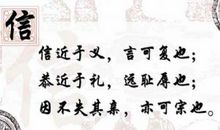 信
信近于义，言可复也；
恭近于礼，远耻辱也；
因不失其亲，亦可宗也。